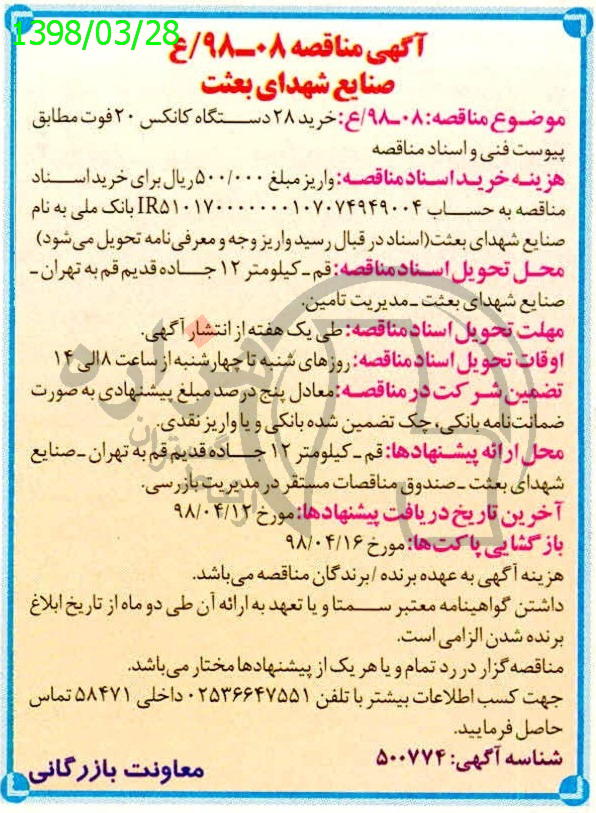 1398/03/28
آگهی مناقصه ۰۸-۹۸/ع
صنایع شهدای بعثت
موضوع مناقصه: ۰۸-۹۸/ع: خرید ۲۸ دستگاه کانکس ۲۰ فوت مطابق
پیوست فنی و اسناد مناقصه
هزینه خرید اسناد مناقصه: واریز مبلغ ۵۰۰/۰۰۰ ریال برای خرید اسناد
مناقصه به حساب IR۵۱۰۱۷۰۰۰۰۰۰۰۱۰۷۰۷۴۹۴۹۰۰۴ بانک ملی به نام
صنایع شهدای بعثت(اسناد در قبال رسید واریز وجه و معرفی‌نامه تحویل می‌شود)
محل تحویل اسناد مناقصه: قم - کیلومتر ۱۲ جاده قدیم قم به تهران -
صنایع شهدای بعثت - مدیریت تامین.
مهلت تحویل اسناد مناقصه: طی یک هفته از انتشار آگهی.
اوقات تحویل اسناد مناقصه: روزهای شنبه تا چهارشنبه از ساعت ۸ الی ۱۴
تضمین شرکت در مناقصه: معادل پنج درصد مبلغ پیشنهادی به صورت
ضمانت‌نامه بانکی، چک تضمین شده بانکی و یا واریز نقدی.
محل ارائه پیشنهادها: قم - کیلومتر ۱۲ جاده قدیم قم به تهران - صنایع
شهدای بعثت - صندوق مناقصات مستقر در مدیریت بازرسی.
آخرین تاریخ دریافت پیشنهادها: مورخ ۹۸/۰۴/۱۲
بازگشایی پاکت‌ها: مورخ ۹۸/۰۴/۱۶
هزینه آگهی به عهده برنده / برندگان مناقصه می‌باشد.
داشتن گواهینامه معتبر سمتا و یا تعهد به ارائه آن طی دو ماه از تاریخ ابلاغ
برنده شدن الزامی است.
مناقصه‌گزار در رد تمام و یا هر یک از پیشنهادها مختار می‌باشد.
جهت کسب اطلاعات بیشتر با تلفن ۰۲۵۳۶۶۴۷۵۵۱ داخلی ۵۸۴۷۱ تماس
حاصل فرمایید.
شناسه آگهی: ۵۰۰۷۷۴
معاونت بازرگانی